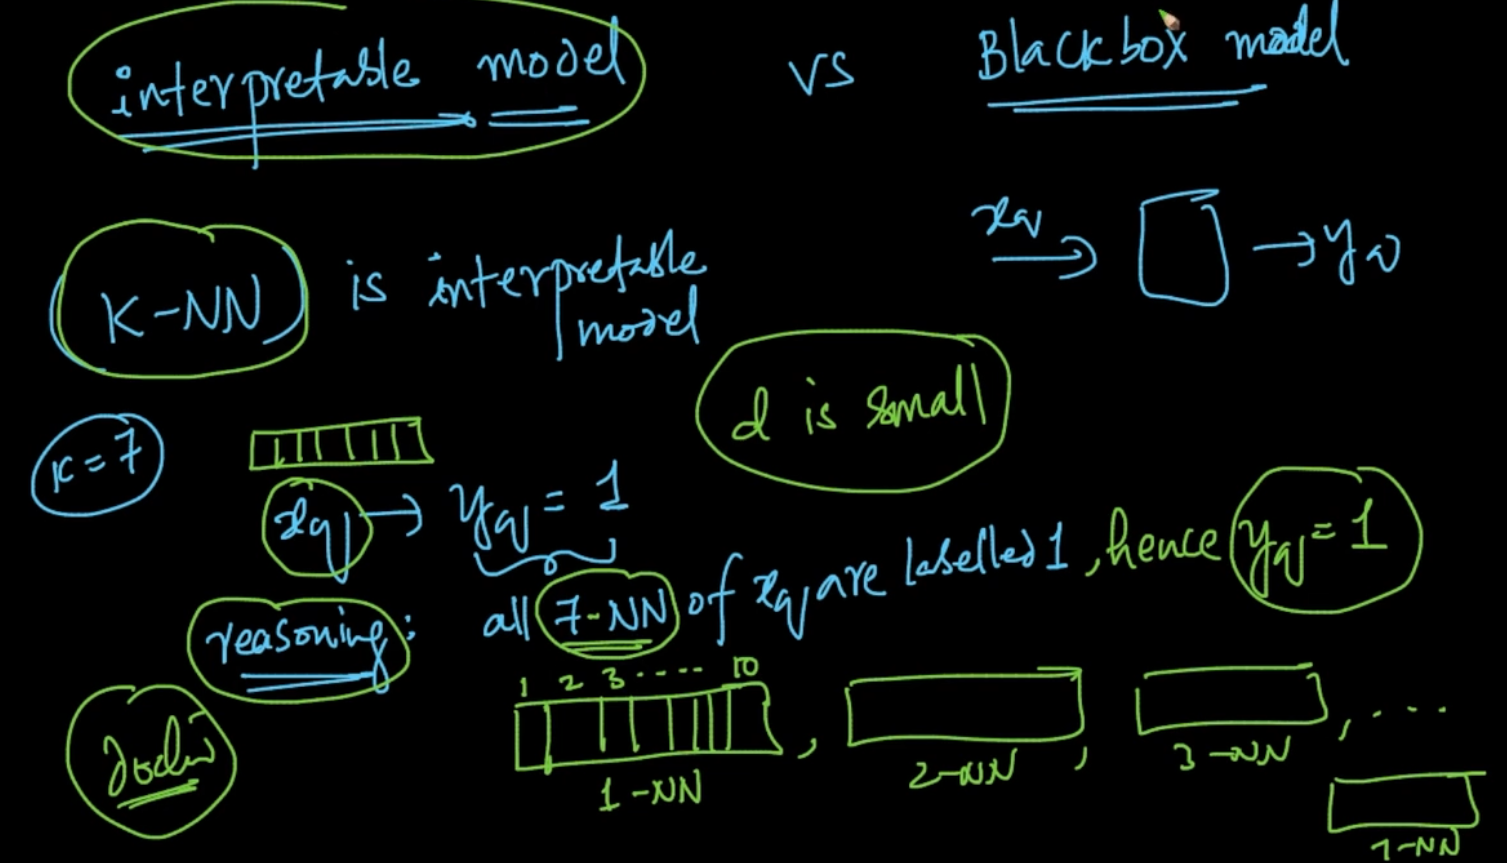 interpretable model vs Blackbox model
xq → → yq
K-NN is interpretable
model
d is small
K=7
xq → yq = 1
reasoning: all 7-NN of xq are labelled 1, hence yq = 1
1 2 3 ..... 10
1-NN , 2-NN , 3-NN , ...
7-NN